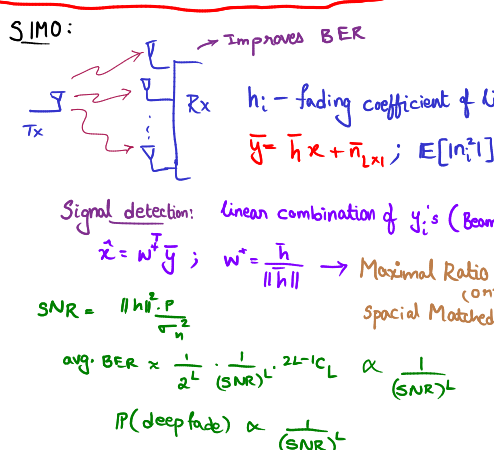 SIMO:
→ Improves BER
Tx
Rx
hᵢ - fading coefficient of
ȳ = h̄ x + n̄_{L×1} ; E[|nᵢ²|]
Signal detection: linear combination of yᵢ's (Beam
x̂ = w̄ᵀ ȳ ; w* = h̄ / ||h̄|| → Maximal Ratio
(or
Spacial Matched
SNR = ||h||² · P / σₙ²
avg. BER ≈ 1/2^L · 1/(SNR)^L · ^{2L-1}C_L ∝ 1/(SNR)^L
P(deep fade) ∝ 1/(SNR)^L